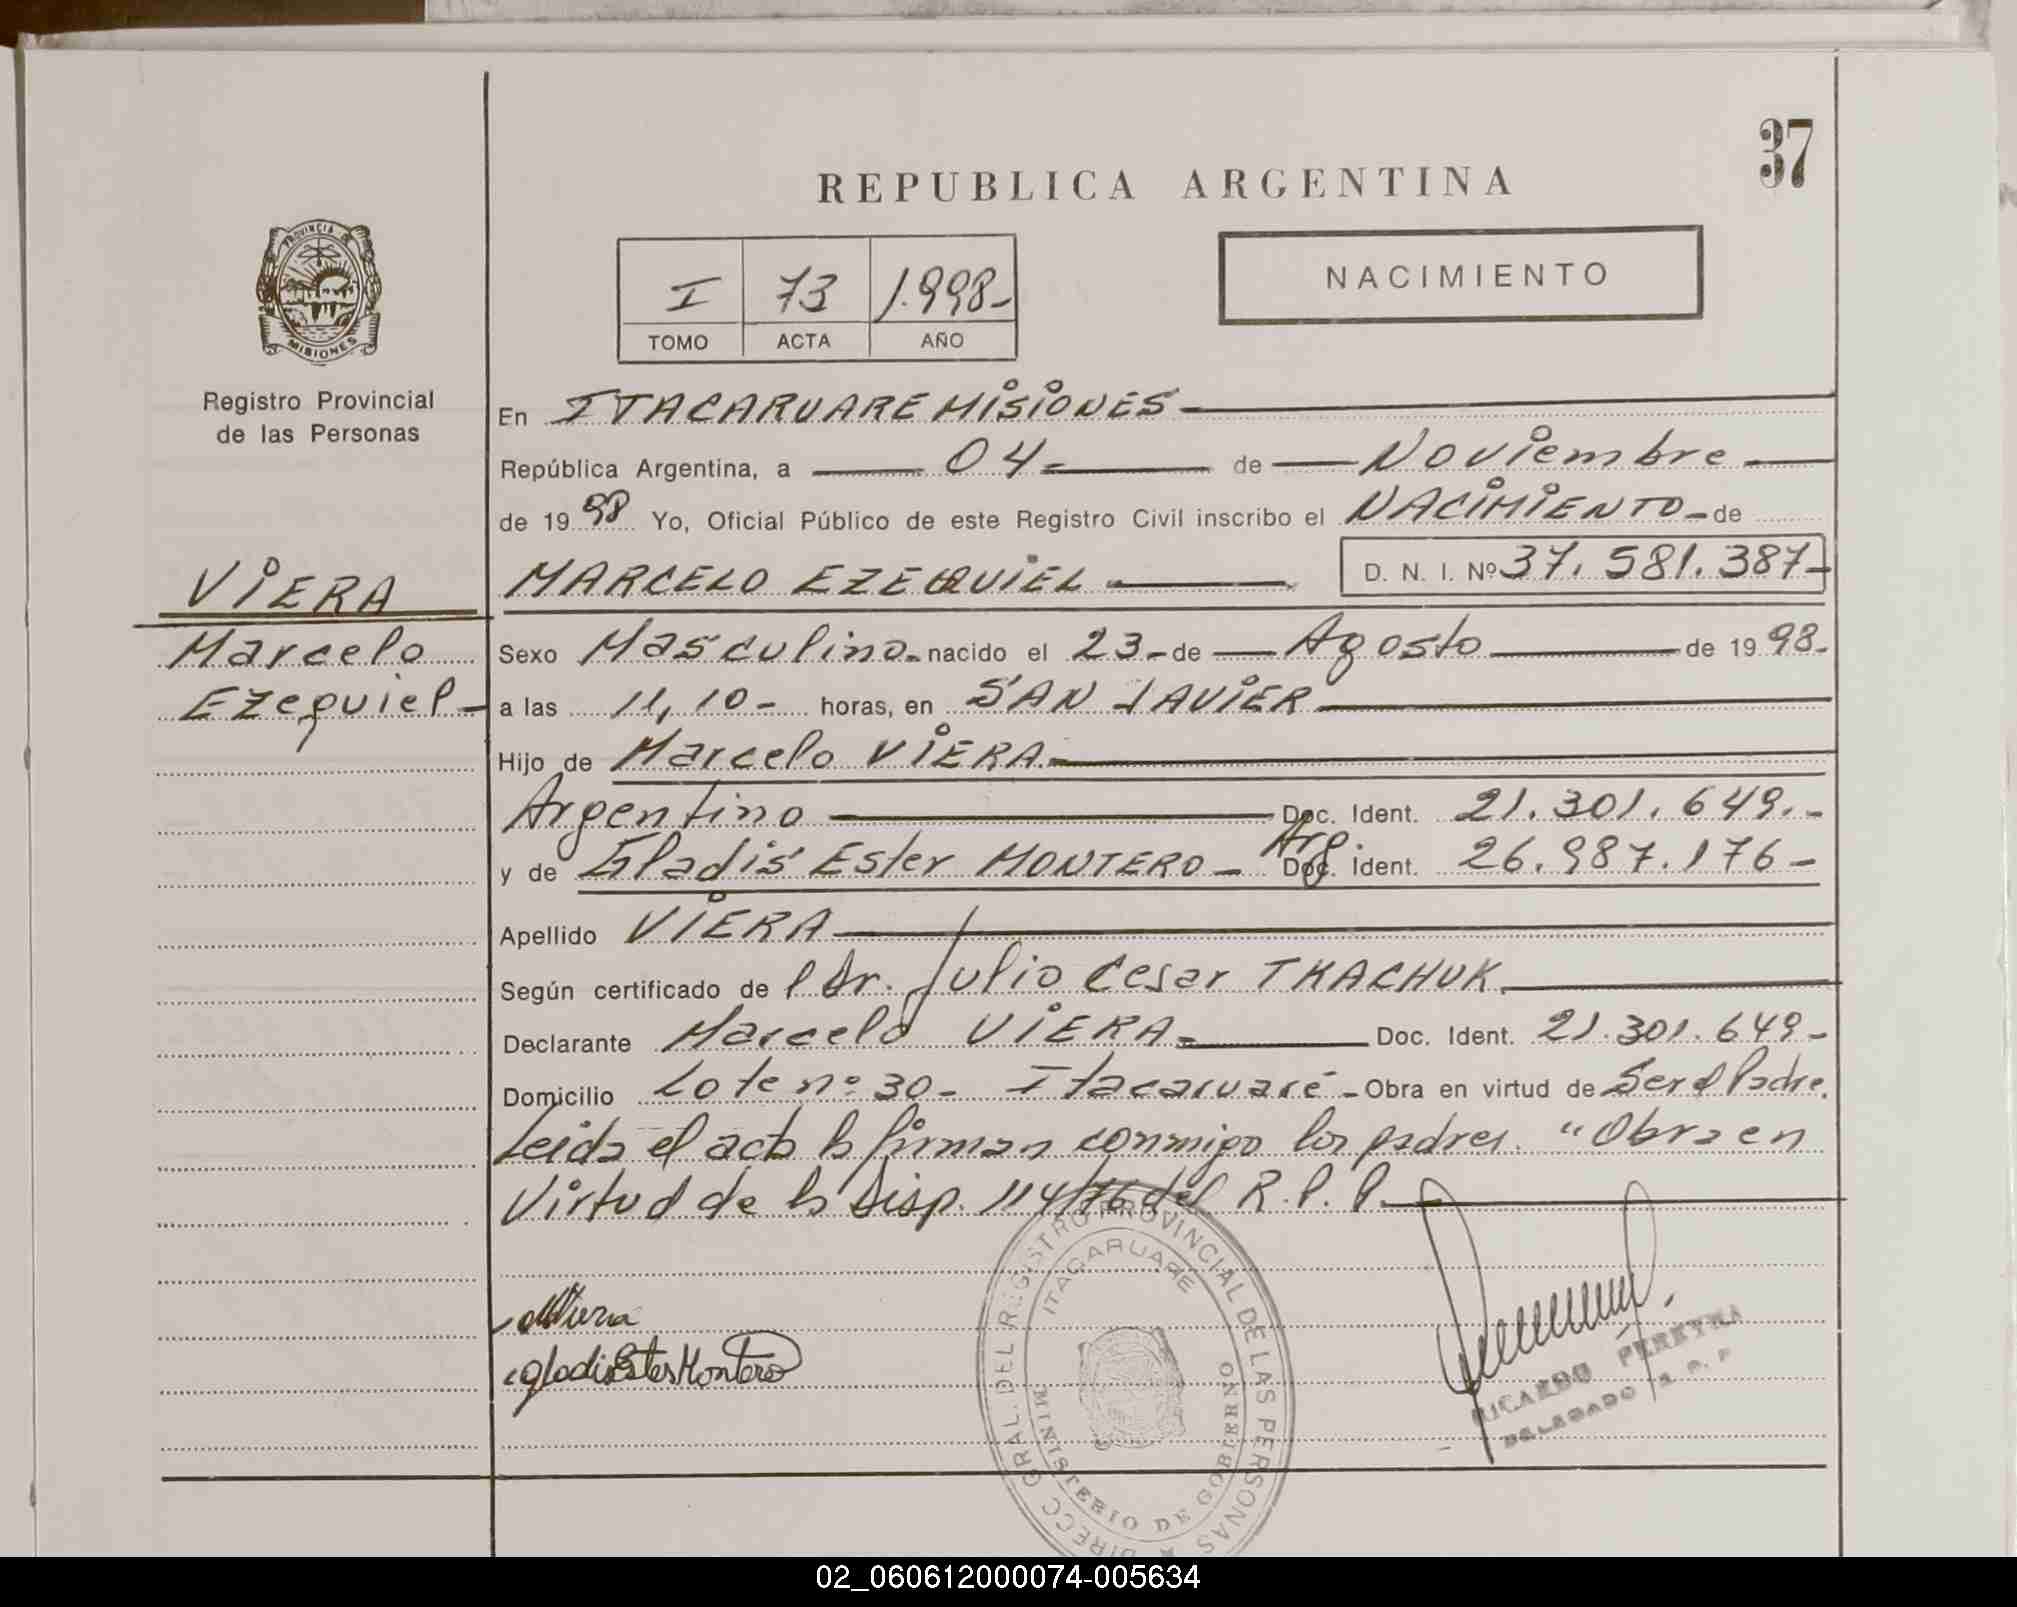 37
REPUBLICA ARGENTINA
I 73 1.998-
TOMO ACTA AÑO
NACIMIENTO
PROVINCIA DE
MISIONES
Registro Provincial
de las Personas
VIERA
Marcelo
Ezequiel-
En ITACARUARE MISIONES
República Argentina, a 04- de Noviembre
de 1998 Yo, Oficial Público de este Registro Civil inscribo el NACIMIENTO- de
MARCELO EZEQUIEL D. N. I. Nº 37.581.387-
Sexo Masculino- nacido el 23- de Agosto de 1998-
a las 11,10- horas, en SAN JAVIER
Hijo de Marcelo VIERA.
Argentino Doc. Ident. 21.301.649.-
y de Gladis Ester MONTERO- Arg. Doc. Ident. 26.987.176-
Apellido VIERA
Según certificado de l Dr. Julio Cesar TKACHUK.
Declarante Marcelo VIERA- Doc. Ident. 21.301.649-
Domicilio Lote nº 30- Itacaruaré- Obra en virtud de Ser el Padre.
Leida el acta la firman conmigo los padres. "Obra en
Virtud de la Disp. 114/76 del R.P.P.
MViera
Gladis Ester Montero
DIRECC GRAL. DEL REGISTRO PROVINCIAL DE LAS PERSONAS
ITACARUARE
MINISTERIO DE GOBIERNO
RICARDO PEREYRA
DELEGADO
02_060612000074-005634